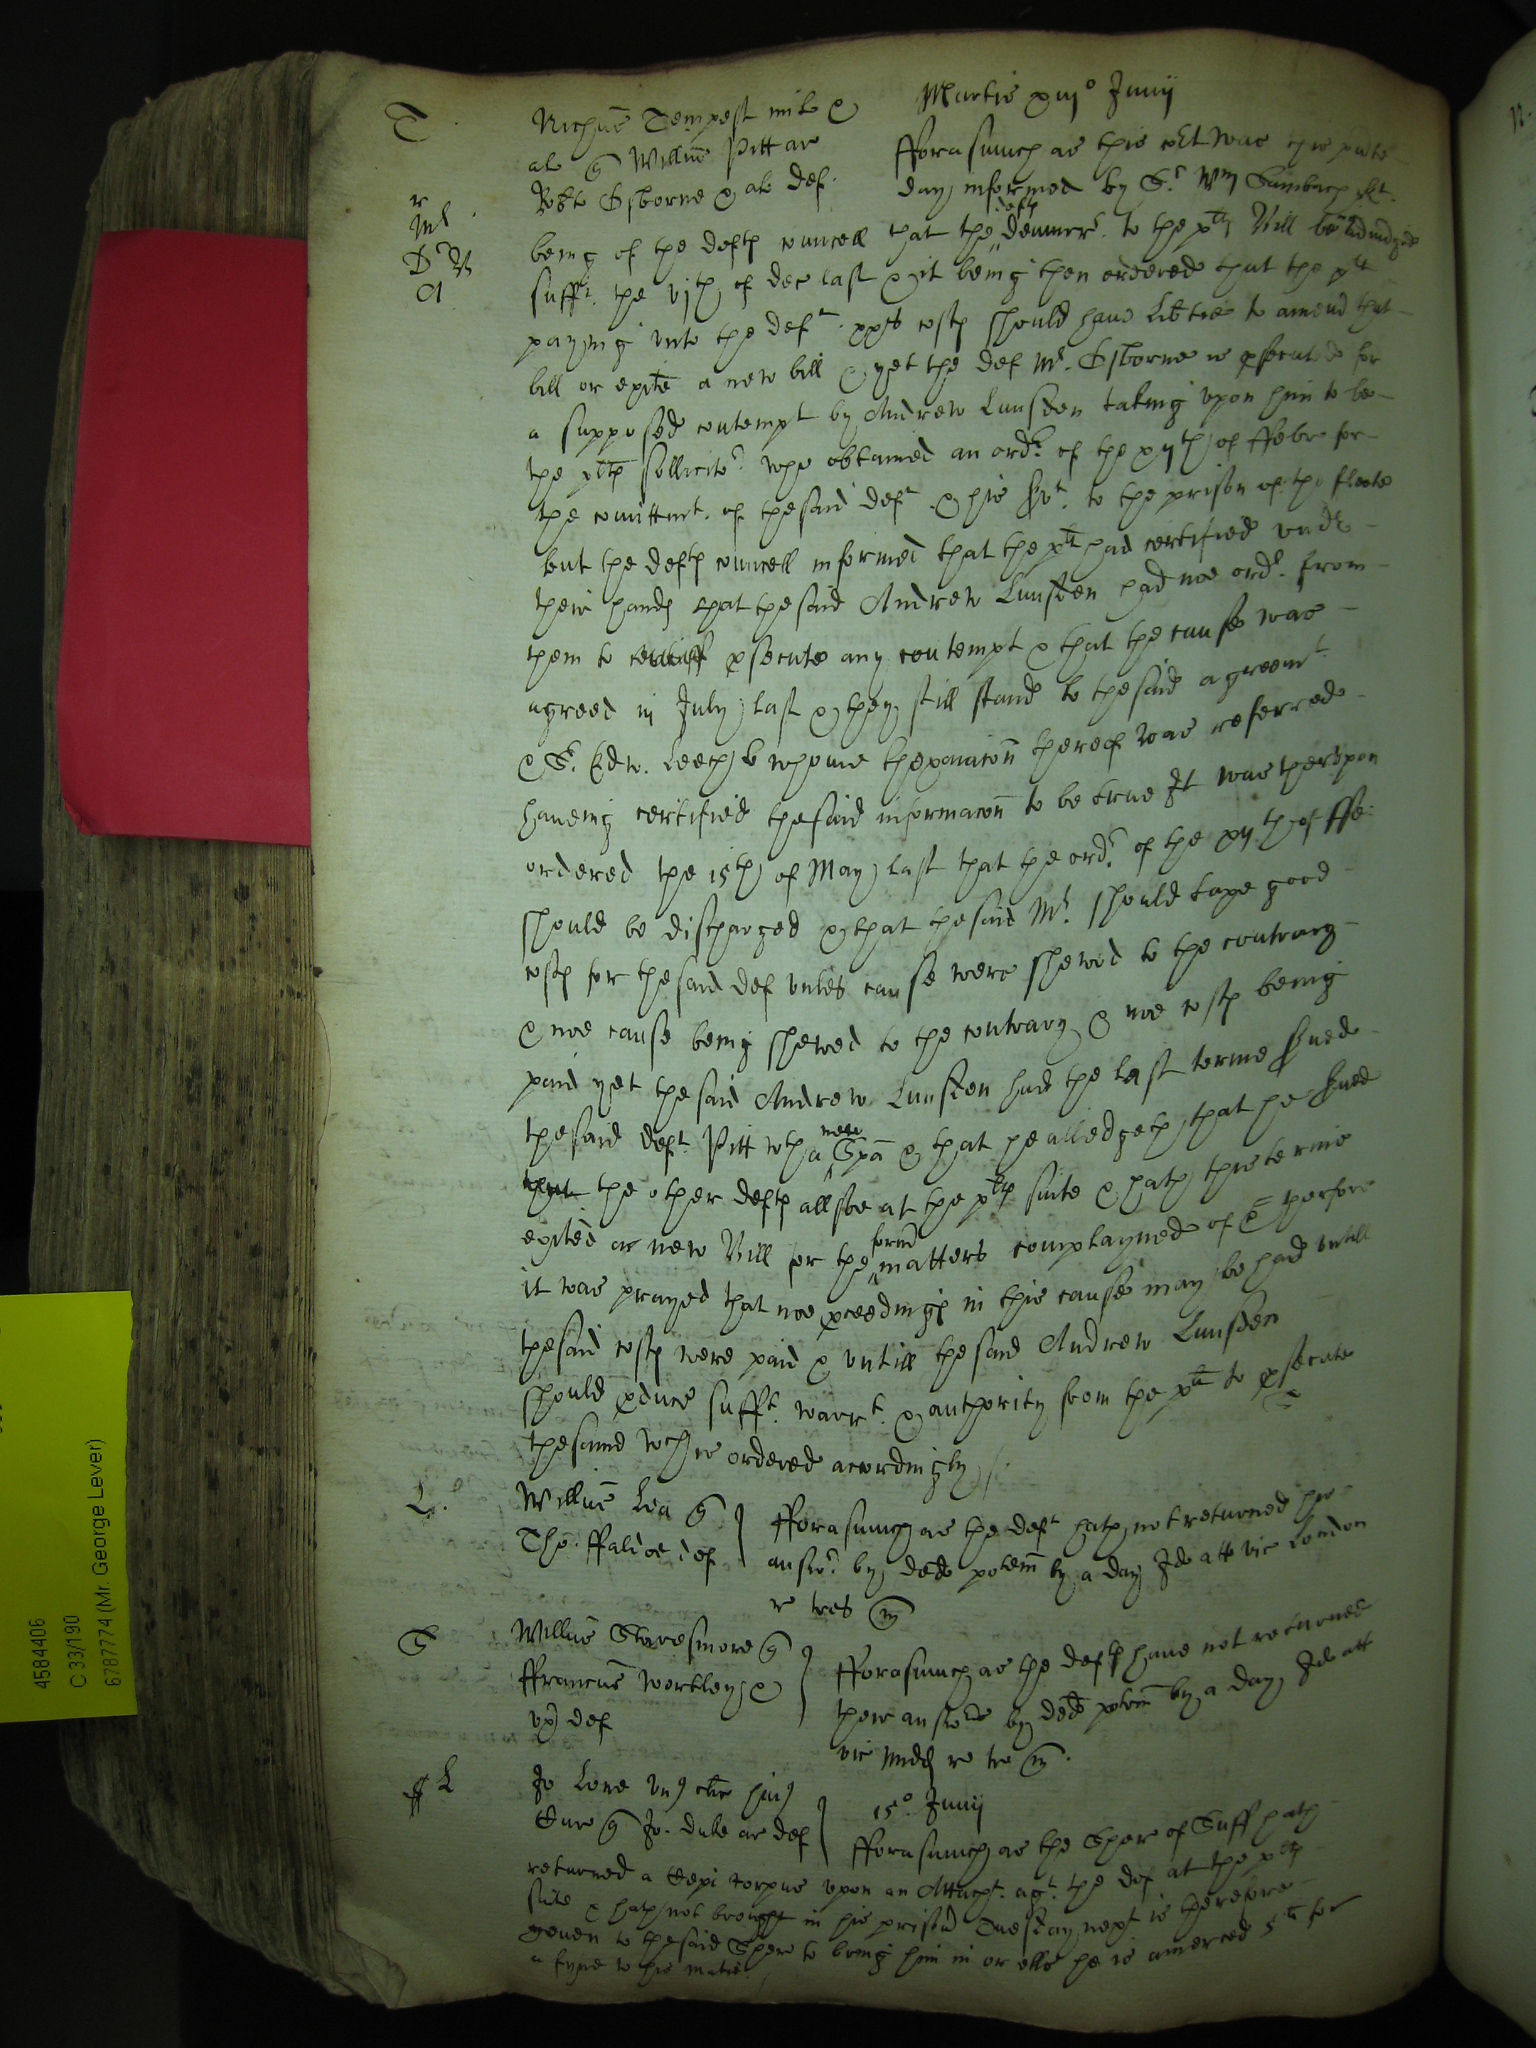 Martis xiij° Junij
T
Nichus Tempest miles &
al q Willus Pitt ar
Robt Osborne & als def.
fforasmuch as this Co:rt was this pnte
day informed by S:r Wm Sambach k:t.
r
M:r
D R
A
being of the defts councell that the defts demurr:r. to the plts Bill beeing adiudged
suff:t. the vjth of Dec last & it being then ordered that the plt
paying unto the def:t. xx:s costs should have lib:tie to amend that
bill or exite a new bill & yet the def M:r. Osborne is psecuted for
a supposed contempt by Andrew Lunsden taking upon him to be
the plts sollicito:r who obtained an ord:r. of the xijth of ffebr for
the comittm:t. of the said def:t & his s:vt. to the prison of the fleete
but the defts councell informed that the plt had certified und:r
their hands that the said Andrew Lunsden had noe ord:r. from
them to psecute any contempt & that the cause was
agreed in July last & they still stand to the said agreem:t.
& S:r. Edw. Leech to whome thexaiacon thereof was referred
haveing certified the said informacon to be true It was therupon
ordered the 15th of May last that the ord:r. of the xijth of ffe:
should be discharged & that the said M:r. should taxe good
costs for the said def unles cause were shewed to the contrary
& noe cause being shewed to the contrary & noe costs being
paid yet the said Andrew Lunsden hath the last terme s:rued
the said def:t. Pitt wth a new Spa & that he alledgeth that he s:rued
the other defts allsoe at the plts suite & hath this terme
exited a new Bill for the form:r matters complayned of & therfore
it was prayed that noe pceedings in this cause may be had untill
the said costs were paid & untill the said Andrew Lunsden
should pduce suff:t. warr:t. & authority from the plt to psecute
the same wch is ordered accordingly
L.
Willus Lea q
Tho. ffaldoe def
fforasmuch as the def:t hath not returned his
answ:r. by ded potem by a day Ido att vic London
re tres m
S
Willus Staresmore q
ffrancus Wortley &
ux def
fforasmuch as the defts have not returned
their answe:r by ded potem by a day Ido att
vic Midd re tre m.
L
Jo Lone un cler hui
Cure q Jo. Duke ar def
15°. Junij
fforasmuch as the Sher of Suff hath
returned a Cepi corpus upon an Attachm:t. ag:t. the def at the plts
suite & hath not brought in his prison:r Tuesday next is therefore
geuen to the said Sher to bring him in or ells he is amerced 5li for
a fyne to his matie
4584406
C 33/190
6787774 (Mr. George Lever)